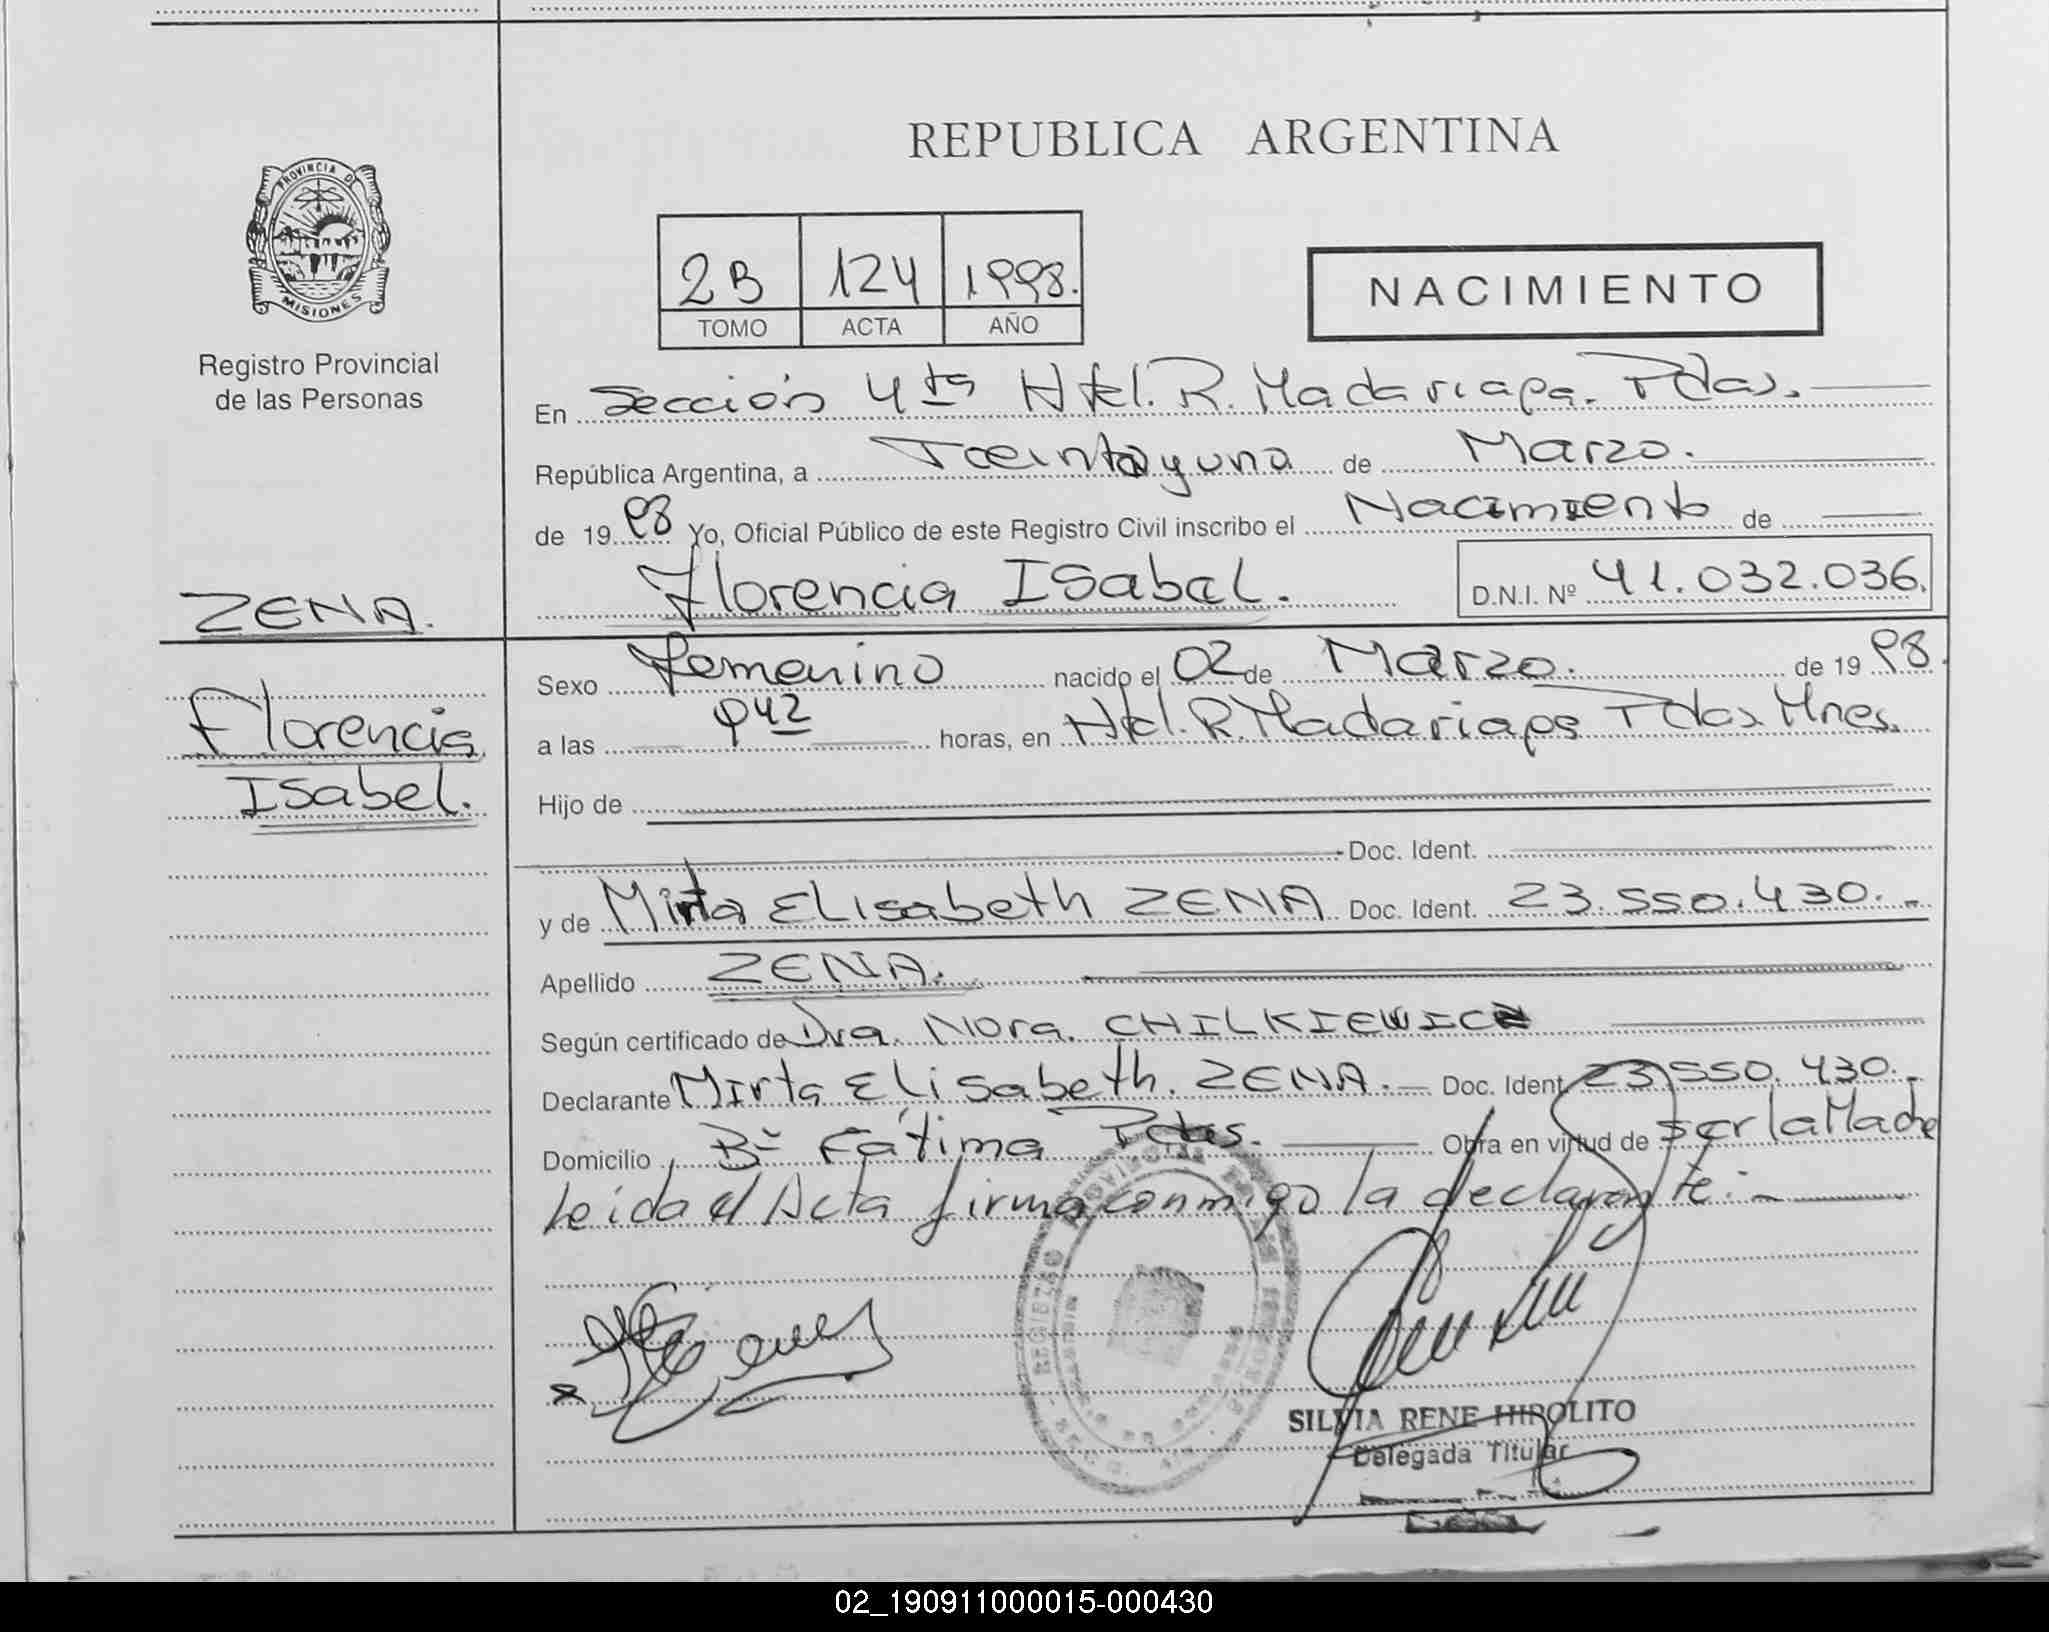 REPUBLICA ARGENTINA
PROVINCIA DE
MISIONES
Registro Provincial
de las Personas
2B 124 1998.
TOMO ACTA AÑO
NACIMIENTO
En Sección 4ta Htal. R. Madariaga. Pdas.
República Argentina, a Treintayuno de Marzo.
de 1998 Yo, Oficial Público de este Registro Civil inscribo el Nacimiento de
Florencia Isabel. D.N.I. Nº 41.032.036.
ZENA.
Florencia
Isabel.
Sexo Femenino nacido el 02 de Marzo. de 1998.
a las 942 horas, en Htal. R. Madariaga Pdas. Mnes.
Hijo de
Doc. Ident.
y de Mirta Elisabeth ZENA Doc. Ident. 23.550.430.-
Apellido ZENA.
Según certificado de Dra. Nora. CHILKIEWICZ
Declarante Mirta Elisabeth. ZENA. Doc. Ident. 23.550.430.-
Domicilio Bº Fátima Pdas. Obra en virtud de ser la Madre
Leida el Acta firma conmigo la declarante.-
SILVIA RENE HIPOLITO
Delegada Titular
02_190911000015-000430